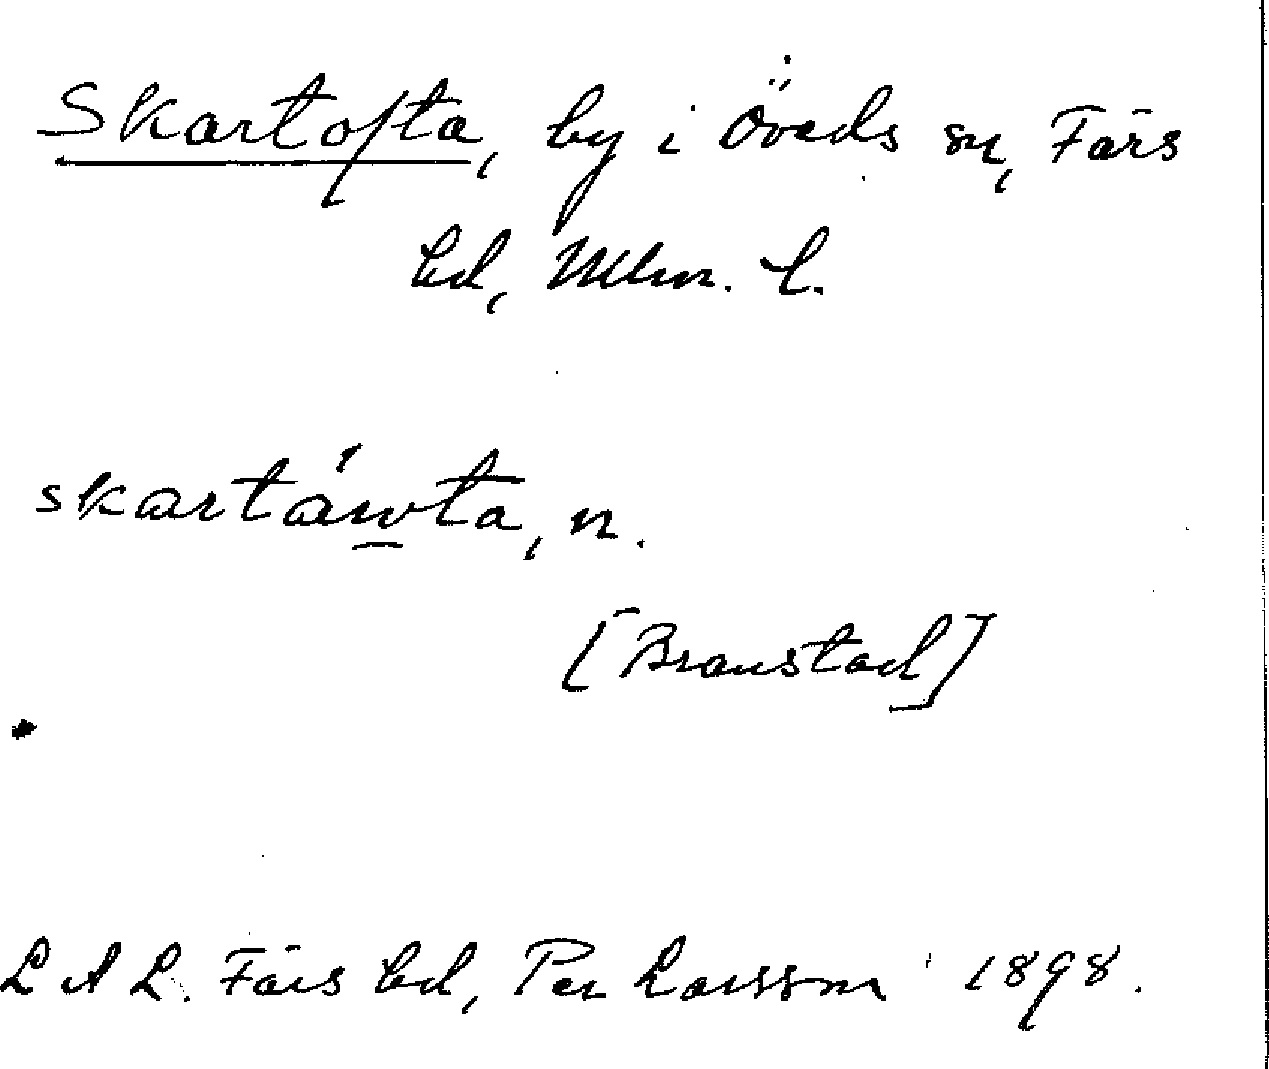 Skartofta, by i Öveds sn, Färs
hd, Mlm. l.
skartáwta, n.
[Branstad]
LAL. Färs hd, Per Larsson 1898.